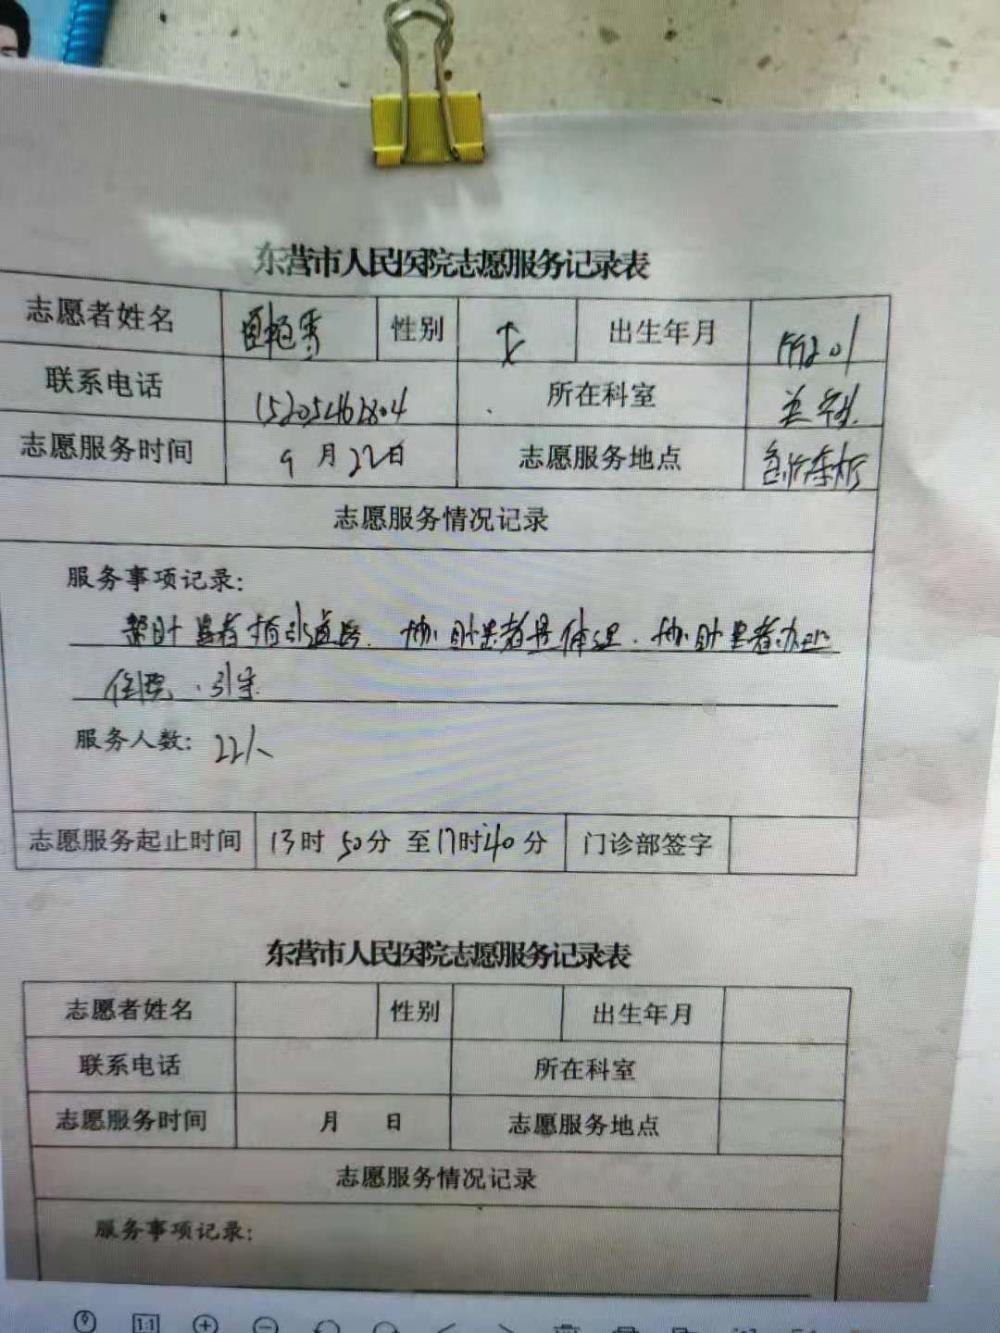 东营市人民医院志愿服务记录表
志愿者姓名 性别 女 出生年月
联系电话 所在科室
志愿服务时间 9月22日 志愿服务地点
志愿服务情况记录
服务事项记录:
帮助患者指引道路. 协助患者 协助患者办理
住院.引导
服务人数: 22人
志愿服务起止时间 13时50分 至17时40分 门诊部签字
东营市人民医院志愿服务记录表
志愿者姓名 性别 出生年月
联系电话 所在科室
志愿服务时间 月 日 志愿服务地点
志愿服务情况记录
服务事项记录:
1:1